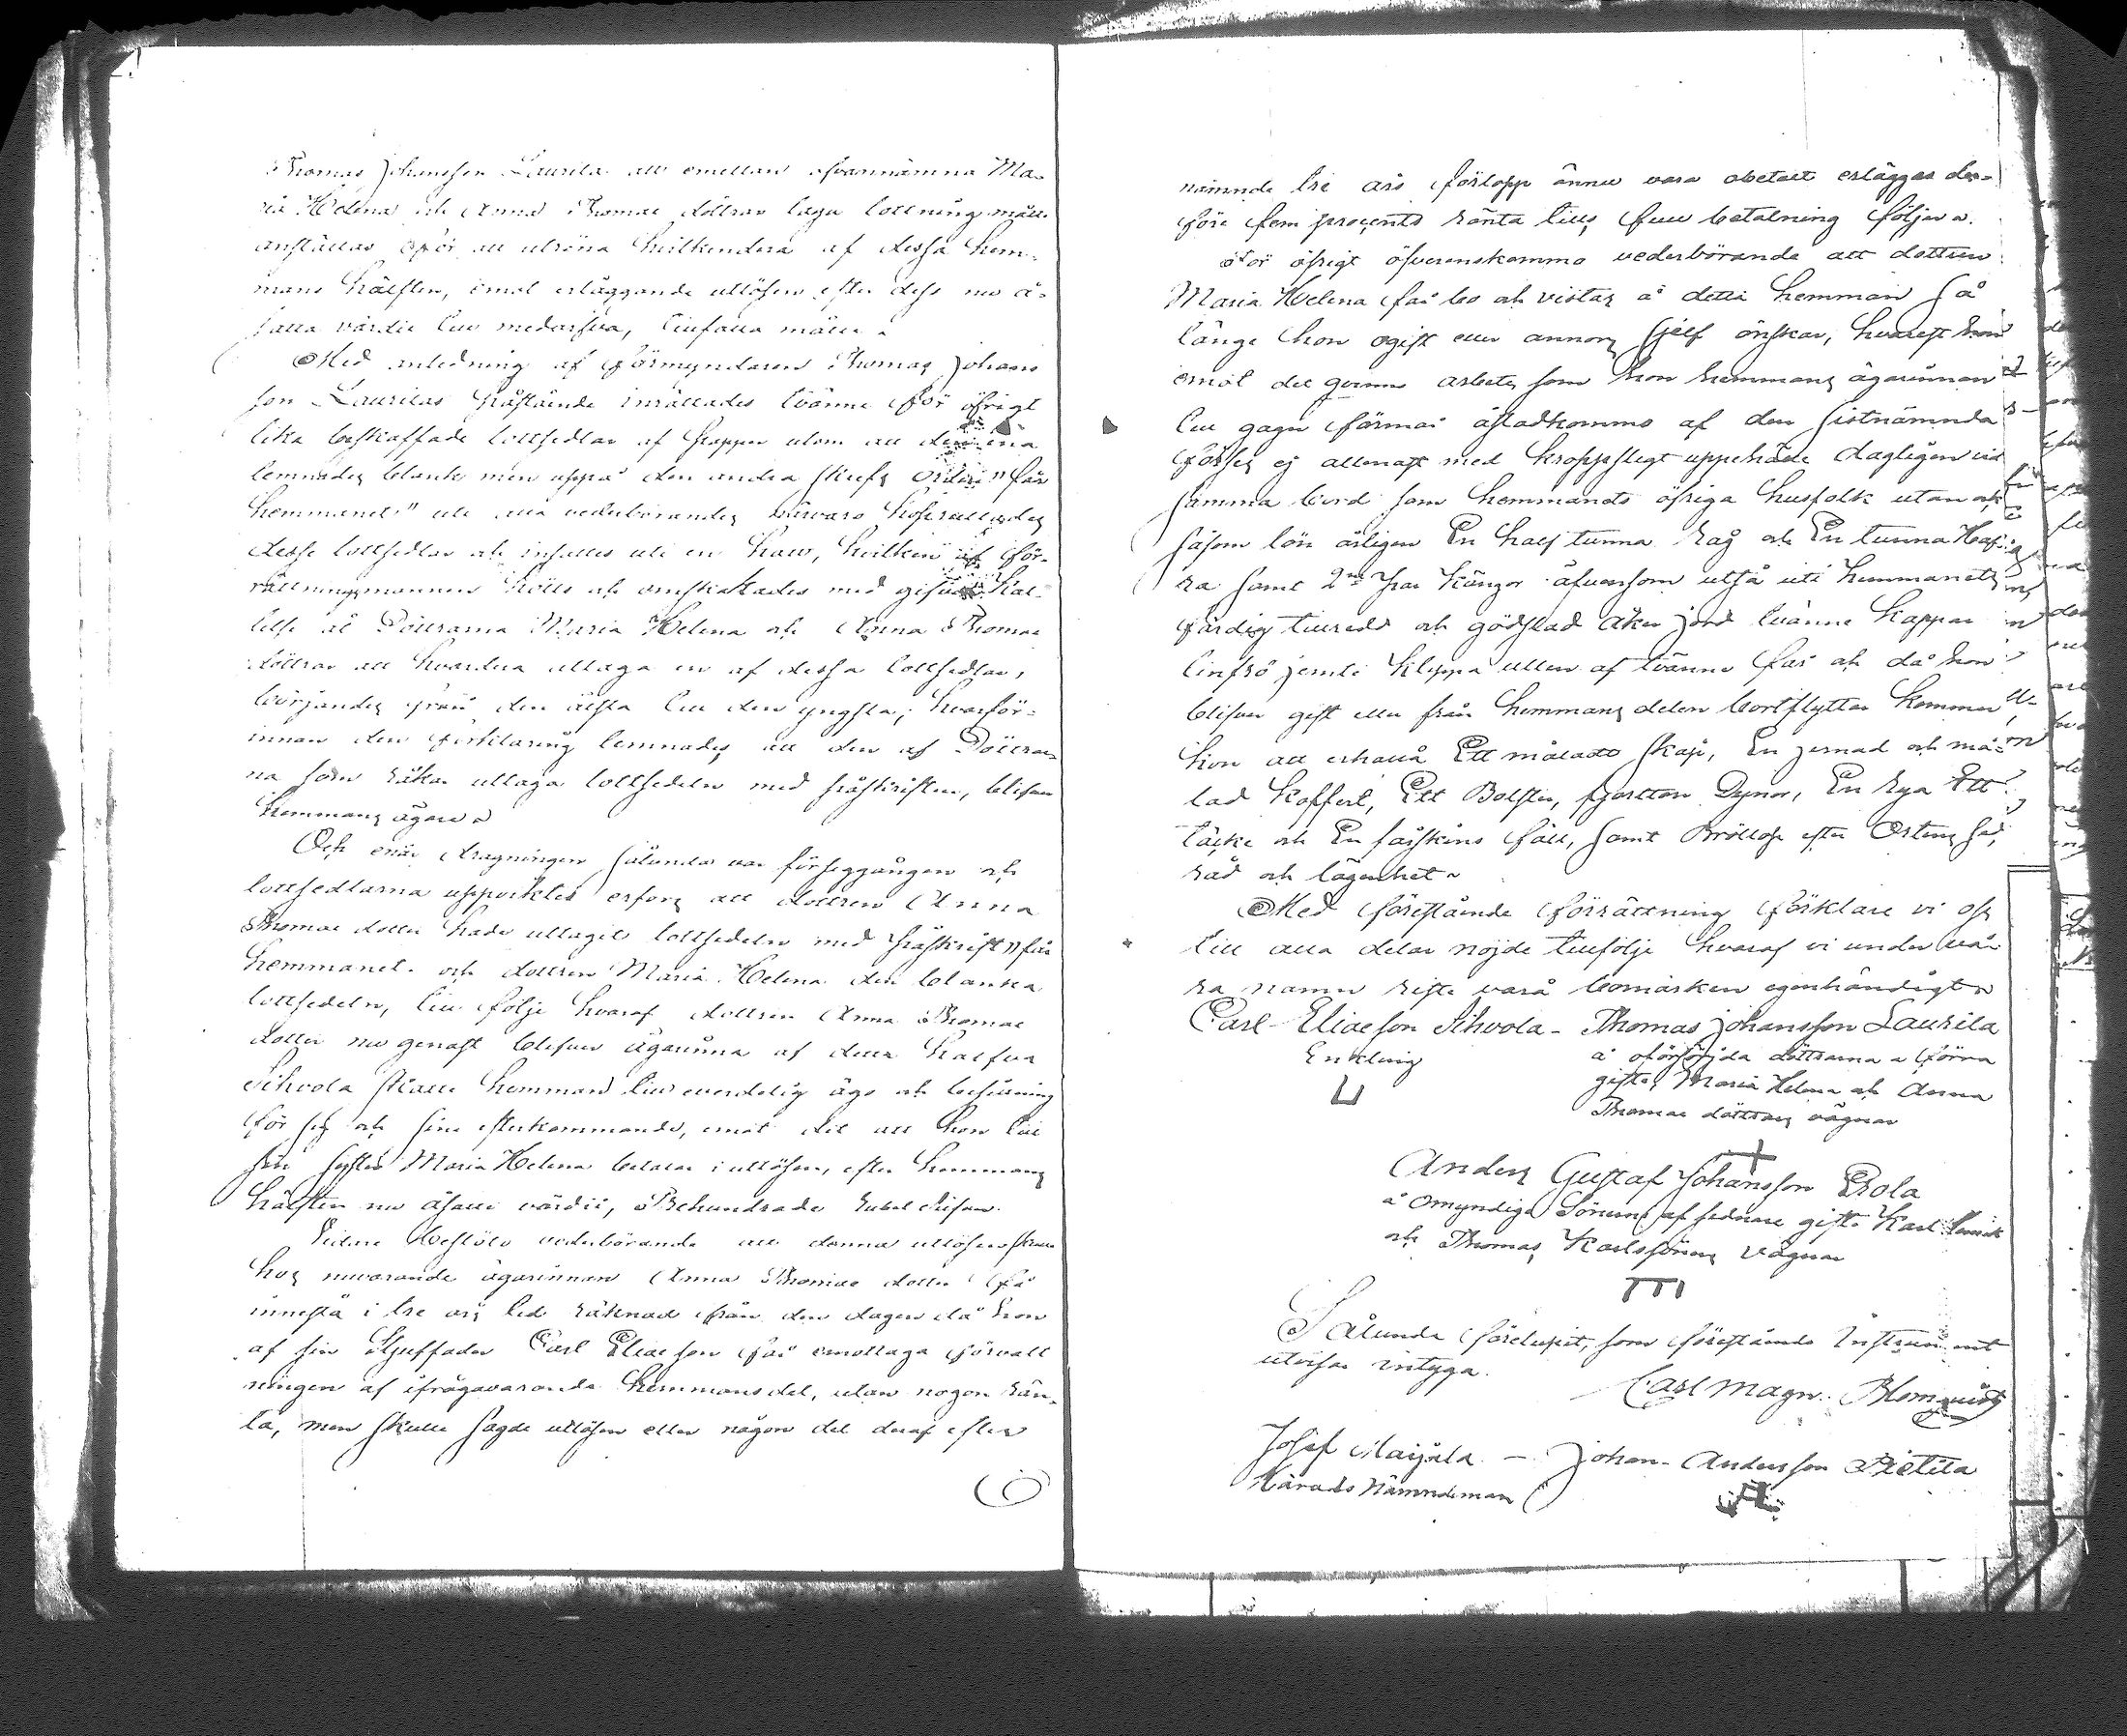 Thomas Johansson Laurila att emellan ofvannämna Ma-
ria Helena och Anna Thomae döttrar laga lottning måtte
anställas för att utröna hvilkendera af dessa hem-
mans hälften, emot erläggande utlösen efter dess nu å-
satta värdie till medarfva, tillfalla måtte.
Med anledning af Förmyndaren Thomas Johans
son Laurilas påstående inrättades tvänne för öfrigt
lika beskaffade lottsedlar af Papper utom att den ena
lemnades blank men uppå den andra skrefs orden "får
hemmanet" uti alla vederbörandes närvaro hoprullades
desse lottsedlar och infälles uti en hatt, hvilken af för-
rättningsmannen hölls och omskakades med gifven Kal-
lelse åt Döttrarna Maria Helena och Anna Thomae
döttrar att hvardera uttaga en af dessa lottsedlar,
börjandes från den älsta till den yngsta; hvarför-
innan den förklaring lemnades, att den af Döttrar
na som råkar uttaga lottsedeln med påskriften, blifver
Hemmans ägare.
Och enär dragningen sålunda var försiggången och
lottsedlarna uppvikles erfors att dottren Anna
Thomae dotter hade uttagit lottsedeln med påskrift "får
hemmanet. och dottren Maria Helena den blanka
lottsedeln, till följe hvaraf dottren Anna Thomae
dotter nu genast blifver ägarinna af detta halfva
Sihvola Skatte hemman till everdelig ägo och besittning
för sig och sine efterkommande, emot det att hon till
sin syster Maria Helena betalar i utlösen, efter hemmans
hälften nu åsatte värdie, Trehundrade Rubel Silfver.
Vidare beslöto vederbörande att denna utlösen skulle
hos nuvarande ägarinnan Anna Thomae dotter få
innestå i tre års tid räknad från den dagen då hon
af sin Stjuffader Carl Eliaeson får emottaga förvalt
ningen af ifrågavarande Hemmansdel, utan någon rän-
ta, men skulle sagde utlösen eller någon del deraf efter
nämnde tre års förlopp ännu vara obetalt erläggas der-
före fem procents ränta tills full betalning följer.
För öfrigt öfverenskommo vederbörande att dottren
Maria Helena får bo och vistas å detta hemman så
länge hon ogift eller annors sjelf önskar, hvarest hon
emot det gemena arbete som hon hemmans ägarinnan
till gagn förmår åstadkomma af den sistnämnda
förses ej allenast med kroppsligt uppehälle dagligen vid
samma bord som hemmanets öfriga husfolk utan och
såsom lön årligen En half tunna Råg och En tunna Haf-
ra samt 2ne Par Kängor äfvensom utså uti hemmanets
färdig tillredd och gödslad åker jord tvänne Kappar
linfrö jemte klippa ullen af tvänne får och då hon
blifver gift eller från Hemmans delen bortflyttar kommer
hon att erhålla Ett måladt skåp, En jernad och må-
lad Koffert, Ett Bolster, fjortton Dynor, En Rya Ett
täcke och En fårskins fäll, samt Bröllop efter Ortens sed,
råd och lägenhet.
Med förestående förrättning förklare vi oss
till alla delar nöjde tillfölje hvaraf vi under vår
ra namn rista vårå bomärken egenhändigt
Carl Eliaeson Sihvola - Thomas Johansson Laurila
Enkling
å oförsörjda döttrarna a förra
giftes Maria Helena och Anna
Thomae döttrars vägnar
Anders Gustaf Johansson Erola
å Omyndige Sönerne af sednare gifte Karl Henrik
och Thomas Karlssöners vägnar
Sålunda förelupit, som förestående Instrument
utvisar intyga.
Carl Magn. Blomqvist
Josef Maijala - Johan Andersson Pietilä
Härads Nämndeman